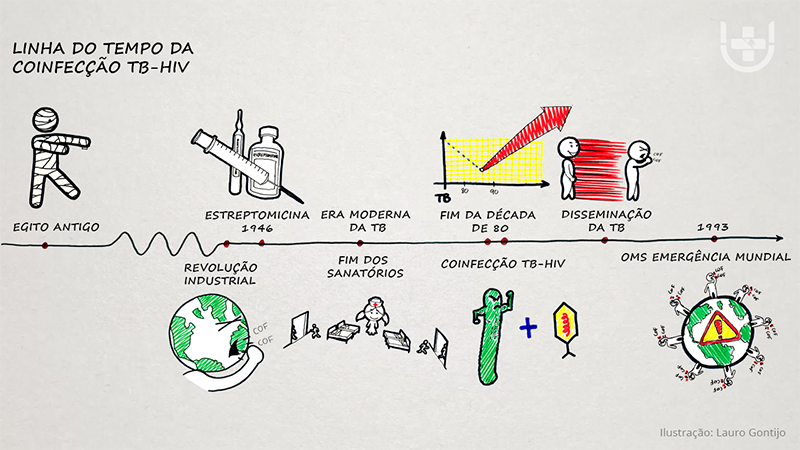 LINHA DO TEMPO DA
COINFECÇÃO TB-HIV
EGITO ANTIGO
ESTREPTOMICINA
1946
ERA MODERNA
DA TB
TB
80
90
FIM DA DÉCADA
DE 80
DISSEMINAÇÃO
DA TB
1993
REVOLUÇÃO
INDUSTRIAL
COF
COF
FIM DOS
SANATÓRIOS
COINFECÇÃO TB-HIV
OMS EMERGÊNCIA MUNDIAL
Ilustração: Lauro Gontijo